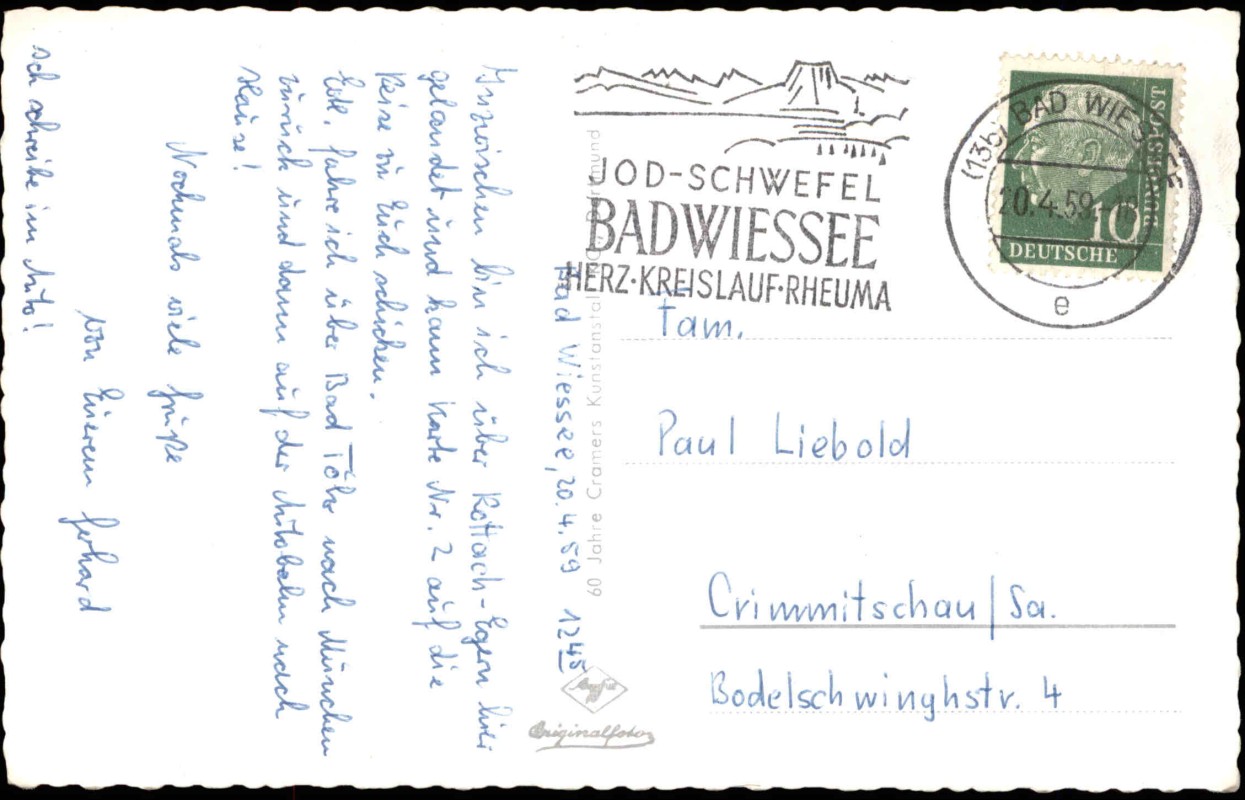 Bad Wiessee, 20.4.59 12 45
Inzwischen bin ich über Rottach-Egern hier
gelandet und kann Karte Nr. 2 auf die
Reise zu Euch schicken.
Evtl. fahre ich über Bad Tölz nach München
zurück und dann auf der Autobahn nach
Hause!
Nochmals viele Grüße
von Eurem Gerhard
Ich schreibe im Auto!
60 Jahre Cramers Kunstanstalt KG, Dortmund
Agfa
Originalfoto
JOD-SCHWEFEL
BAD WIESSEE
HERZ·KREISLAUF·RHEUMA
(13b) BAD WIESSEE
20.4.59
e
DEUTSCHE
BUNDESPOST
10
Fam.
Paul Liebold
Crimmitschau/Sa.
Bodelschwinghstr. 4